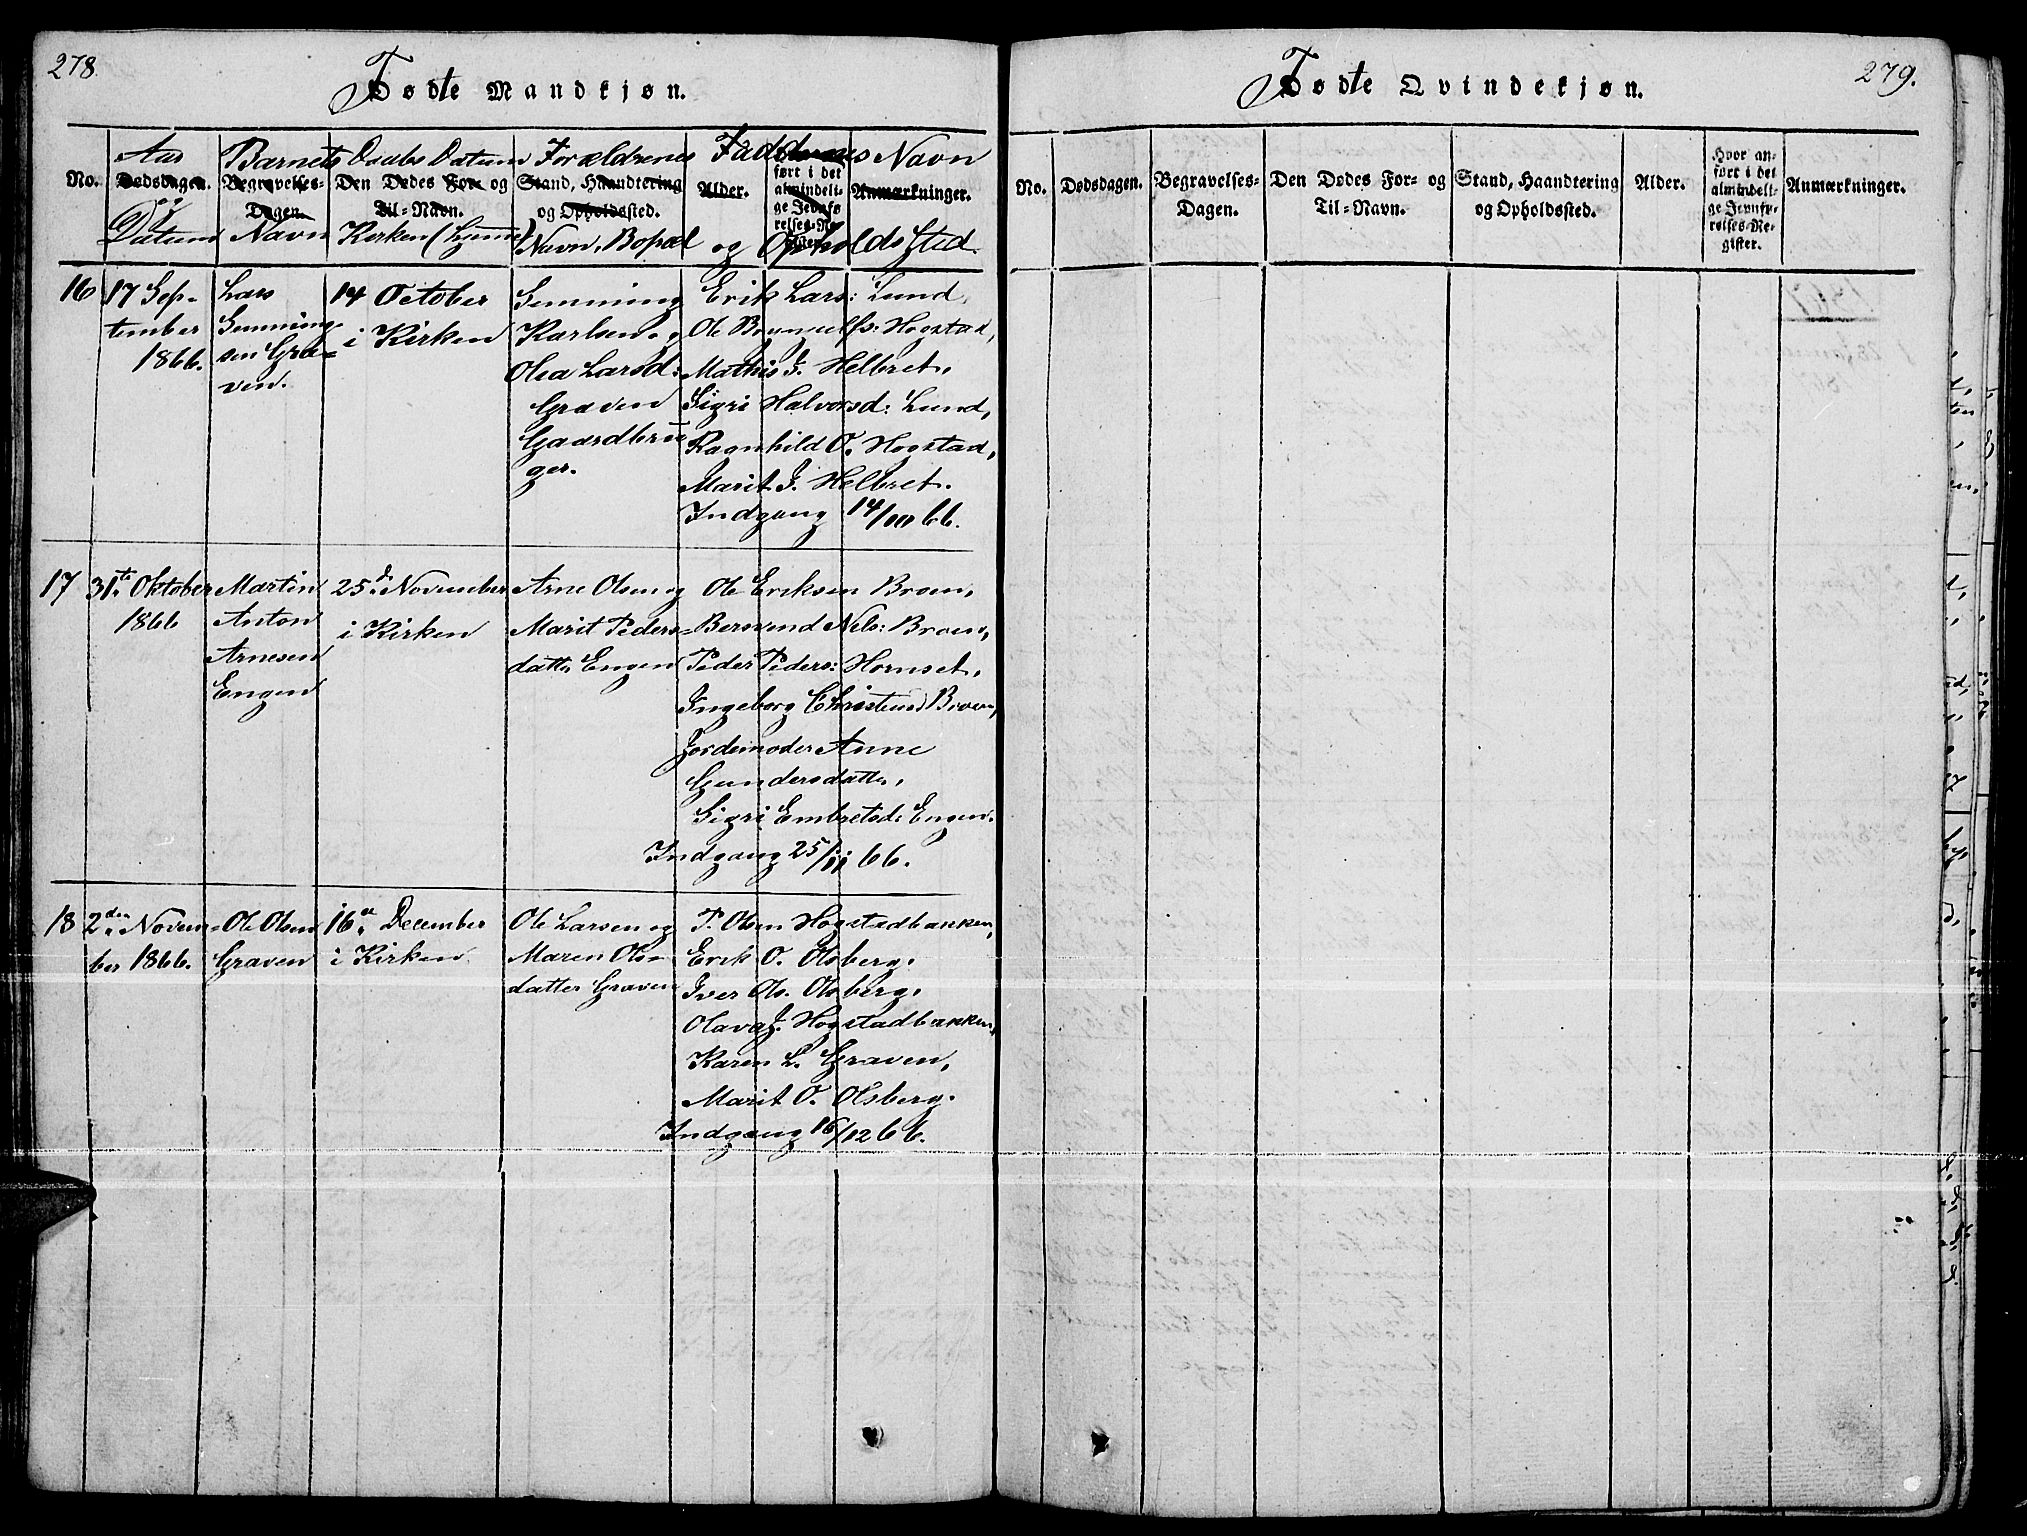 278.
Fødte Mandkjøn.
No.
Aar
Dødsdagen.
og
Datum
Barnets
Begravelses-
Dagen.
Navn
Daabs Datum
Den Dødes For- og
Til-Navn.
Kirken (hjemme)
Forældrenes
Stand, Haandtering
og Opholdssted.
Navn, Bopæl
Faddernes Navn
Alder.
ført i det
almindeli-
ge Jevnfø-
relses-Re-
gister.
Anmærkninger.
og Opholdssted.
16
17 Sep-
tember
1866.
Lars
Gemming-
sen Gra-
ven.
14 October
i Kirken
Gemming
Karlsen og
Olea Larsd:
Graven
Gaardbru-
ger.
Erik Lars: Lund,
Ole Brynulfs: Hogstad,
Mathis J. Helbret,
Sigri Halvorsd: Lund,
Ragnhild O. Hogstad,
Marit J. Helbret.
Indgang 14/10 66.
17
31te Oktober
1866
Martin
Anton
Arnesen
Engen
25de November
i Kirken
Arne Olsen og
Marit Peders-
datter Engen
Ole Eriksen Broen,
Bersvend Nels: Broen,
Peder Peders: Hornset,
Ingeborg Christensd Broen,
Jordemoder Anne
Gundersdatter,
Sigri Embretsd: Engen.
Indgang 25/11 66.
18
2den Novem-
ber 1866.
Ole Olsen
Graven
16de December
i Kirken
Ole Larsen og
Maren Ols-
datter Graven
P. Olsen Hogstadbakken,
Erik O. Olsberg,
Iver Ols. Olsberg,
Olava J. Hogstadbakken,
Karen L. Graven,
Marit O. Olsberg.
Indgang 16/12 66.
279.
Fødte Qvindekjøn.
No.
Dødsdagen.
Begravelses-
Dagen.
Den Dødes For- og
Til-Navn.
Stand, Haandtering
og Opholdssted.
Alder.
Hvor an-
ført i det
almindeli-
ge Jevnfø-
relses-Re-
gister.
Anmærkninger.